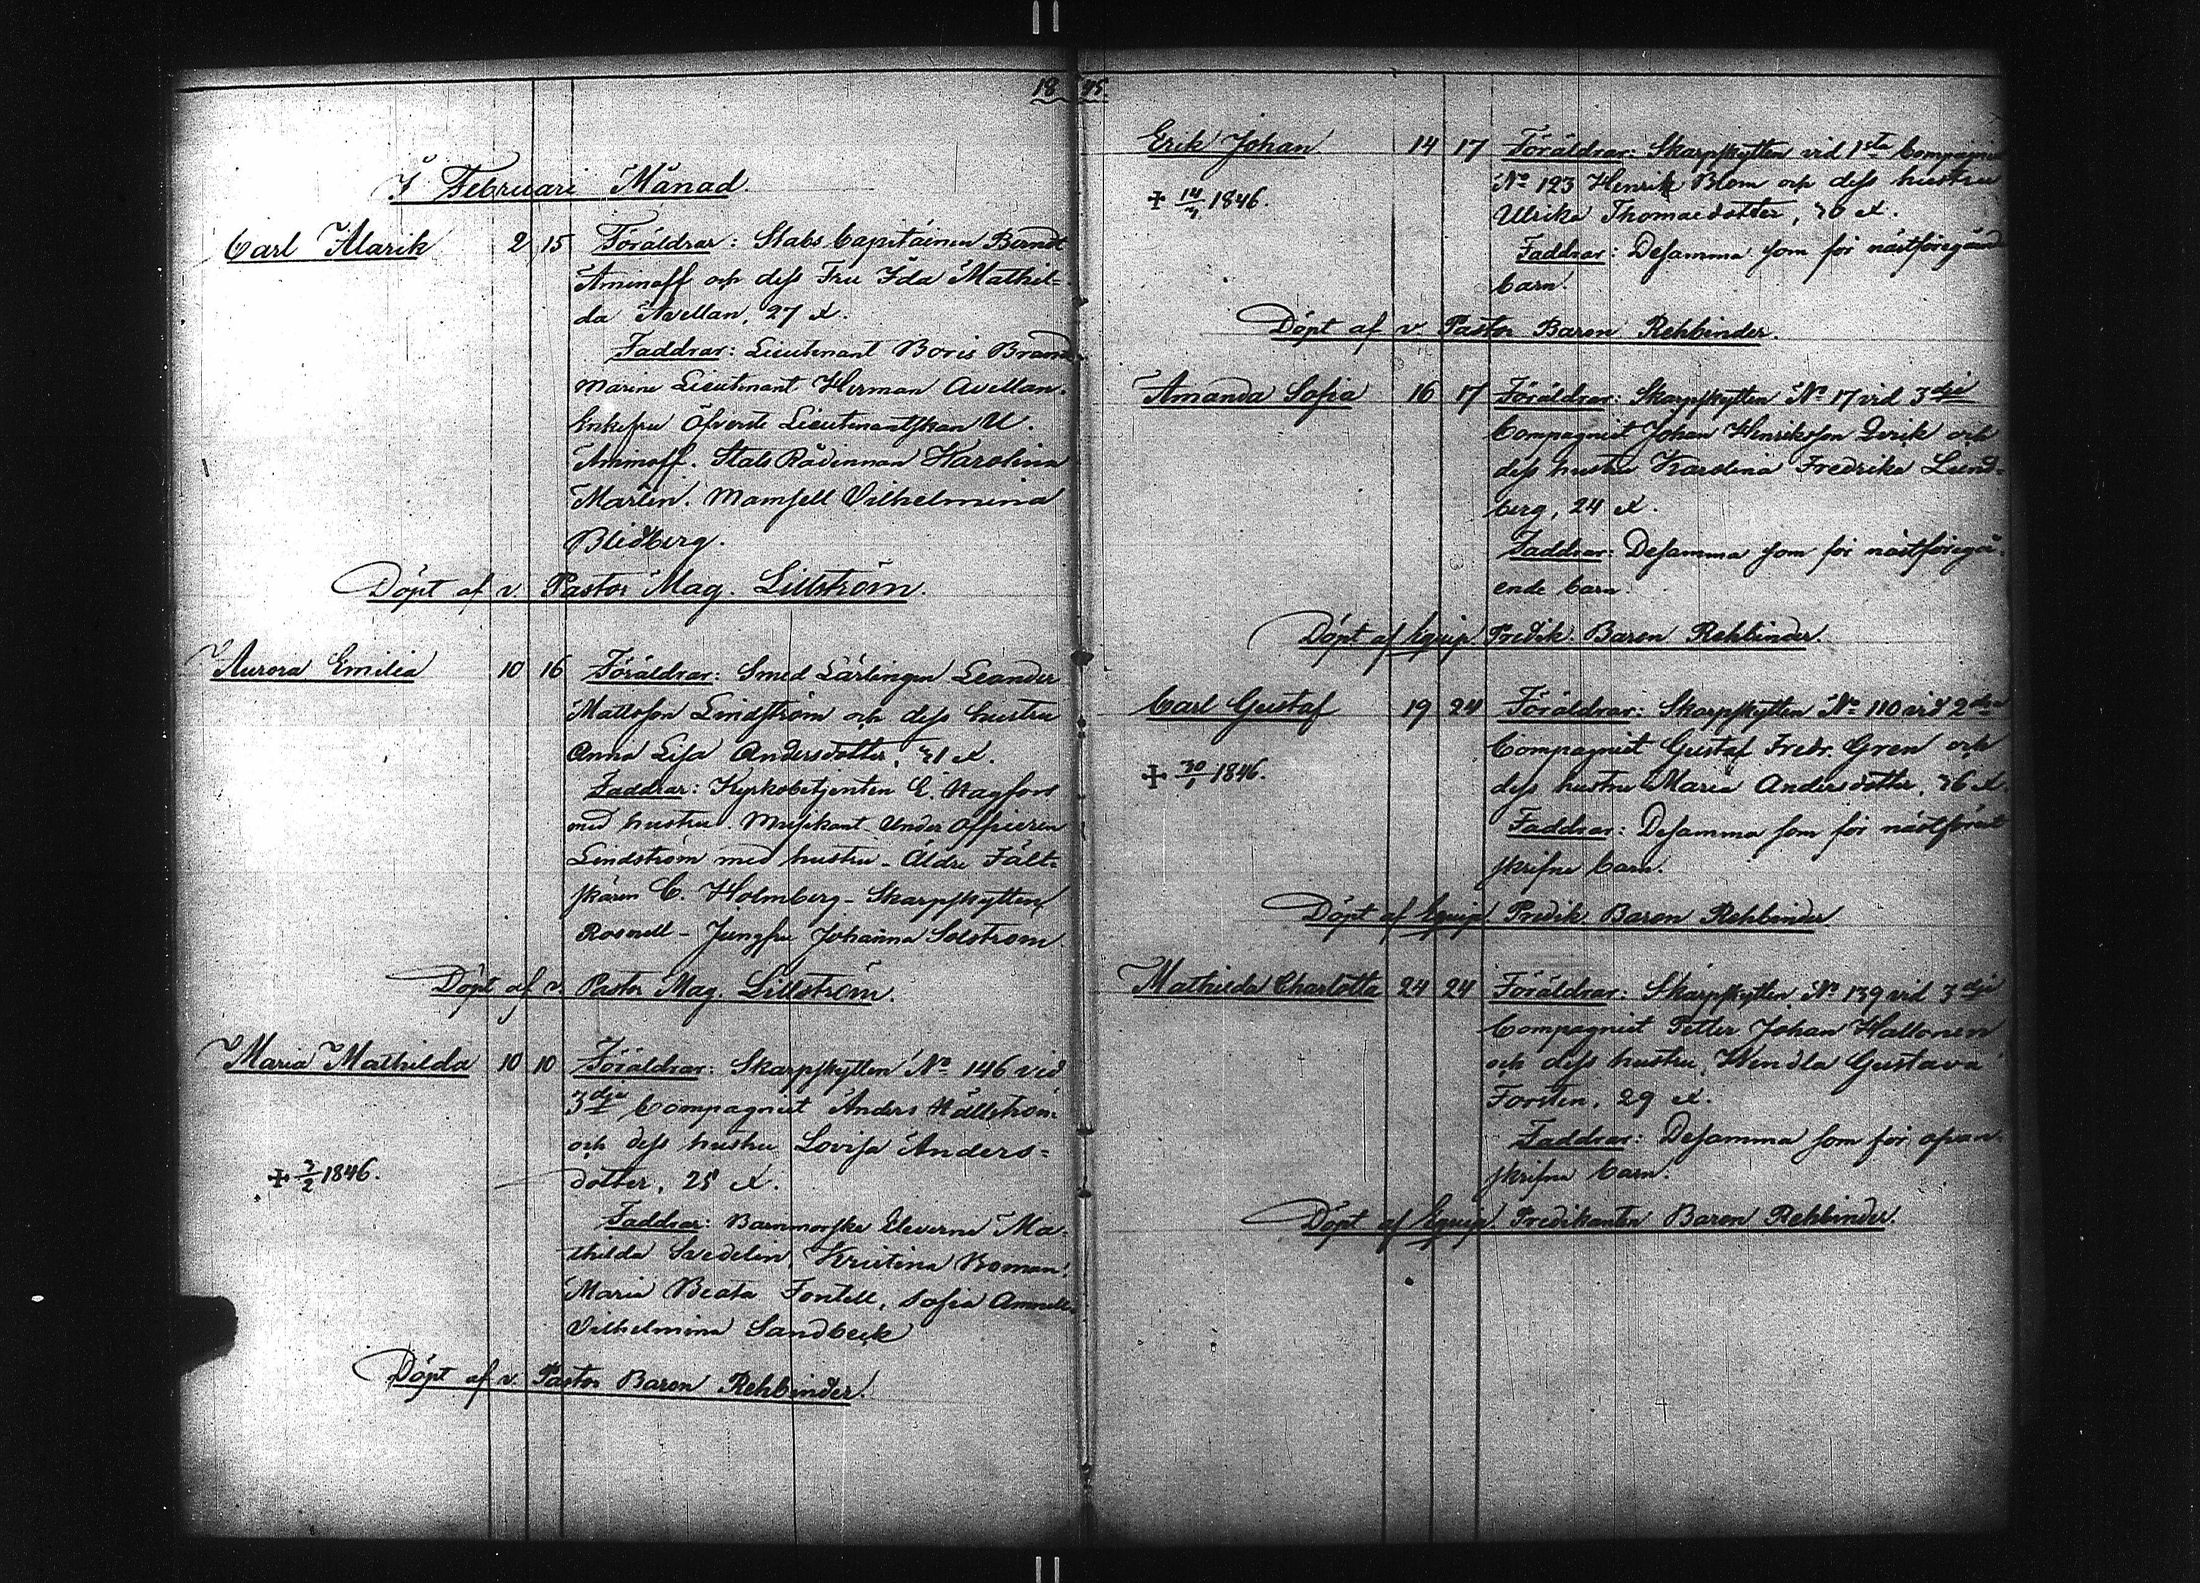 18 45.
I Februari Månad.
Carl Alarik 2 15 Föräldrar: Stabs Capitainen Berndt
Aminoff och dess Fru Ida Mathil-
da Avellan, 27 å.
Faddrar: Lieutenant Boris Brand
Marine Lieutenant Herman Avellan.
Enkefru Öfverste Lieutenantskan U.
Aminoff. Stats Rådinnan Karolina
Martin. Mamsell Vilhelmina
Blidberg.
Döpt af v. Pastor Mag. Lillström.
Aurora Emilia 10 16 Föräldrar: Smed Lärlingen Leander
Mattsson Lindström och dess hustru
Anna Lisa Andersdotter, 31 å.
Faddrar: Kyrkobetjenten E. Hagfors
med hustru. Musikant Under officeren
Lindström med hustru - Äldre Fält-
skären C. Holmberg - Skarpskytten
Rosnell - Jungfru Johanna Solström
Döpt af v. Pastor Mag. Lillström.
Maria Mathilda 10 10 Föräldrar: Skarpskytten No 146 vid
3dje Compagniet Anders Hällström
och dess hustru Lovisa Anders-
dotter, 25 å.
+ 3/2 1846.
Faddrar: Barnmorske Eleverne Ma-
thilda Svedelin, Kristina Boman,
Maria Beata Fontell, Sofia
Vilhelmina Sandbeck
Döpt af v. Pastor Baron Rehbinder.
Erik Johan 14 17 Föräldrar: Skarpskytten vid 1sta Compagniet
No 123 Henrik Blom och dess hustru
+ 14/3 1846.
Ulrika Thomasdotter, 36 å.
Faddrar: Desamma som för nästföregående
barn.
Döpt af v. Pastor Baron Rehbinder.
Amanda Sofia 16 17 Föräldrar: Skarpskytten No 17 vid 3dje
Compagniet Johan Henriksson Qvik och
dess hustru Karolina Fredrika Lund-
berg, 24 å.
Faddrar: Desamma som för nästföregå-
ende barn.
Döpt af Equip. Predik. Baron Rehbinder.
Carl Gustaf 19 24 Föräldrar: Skarpskytten No 110 vid 2dra
Compagniet Gustaf Fredr. Gren och
+ 30/1 1846.
dess hustru Maria Andersdotter, 36 å.
Faddrar: Desamma som för nästförut
skrifne barn.
Döpt af Equip. Predik. Baron Rehbinder
Mathilda Charlotta 24 24 Föräldrar: Skarpskytten No 139 vid 3dje
Compagniet Petter Johan Hallonen
och dess hustru, Hendla Gustava
Forstén, 29 å.
Faddrar: Desamma som för ofvan-
skrifne barn.
Döpt af Equip. Predikanten Baron Rehbinder.